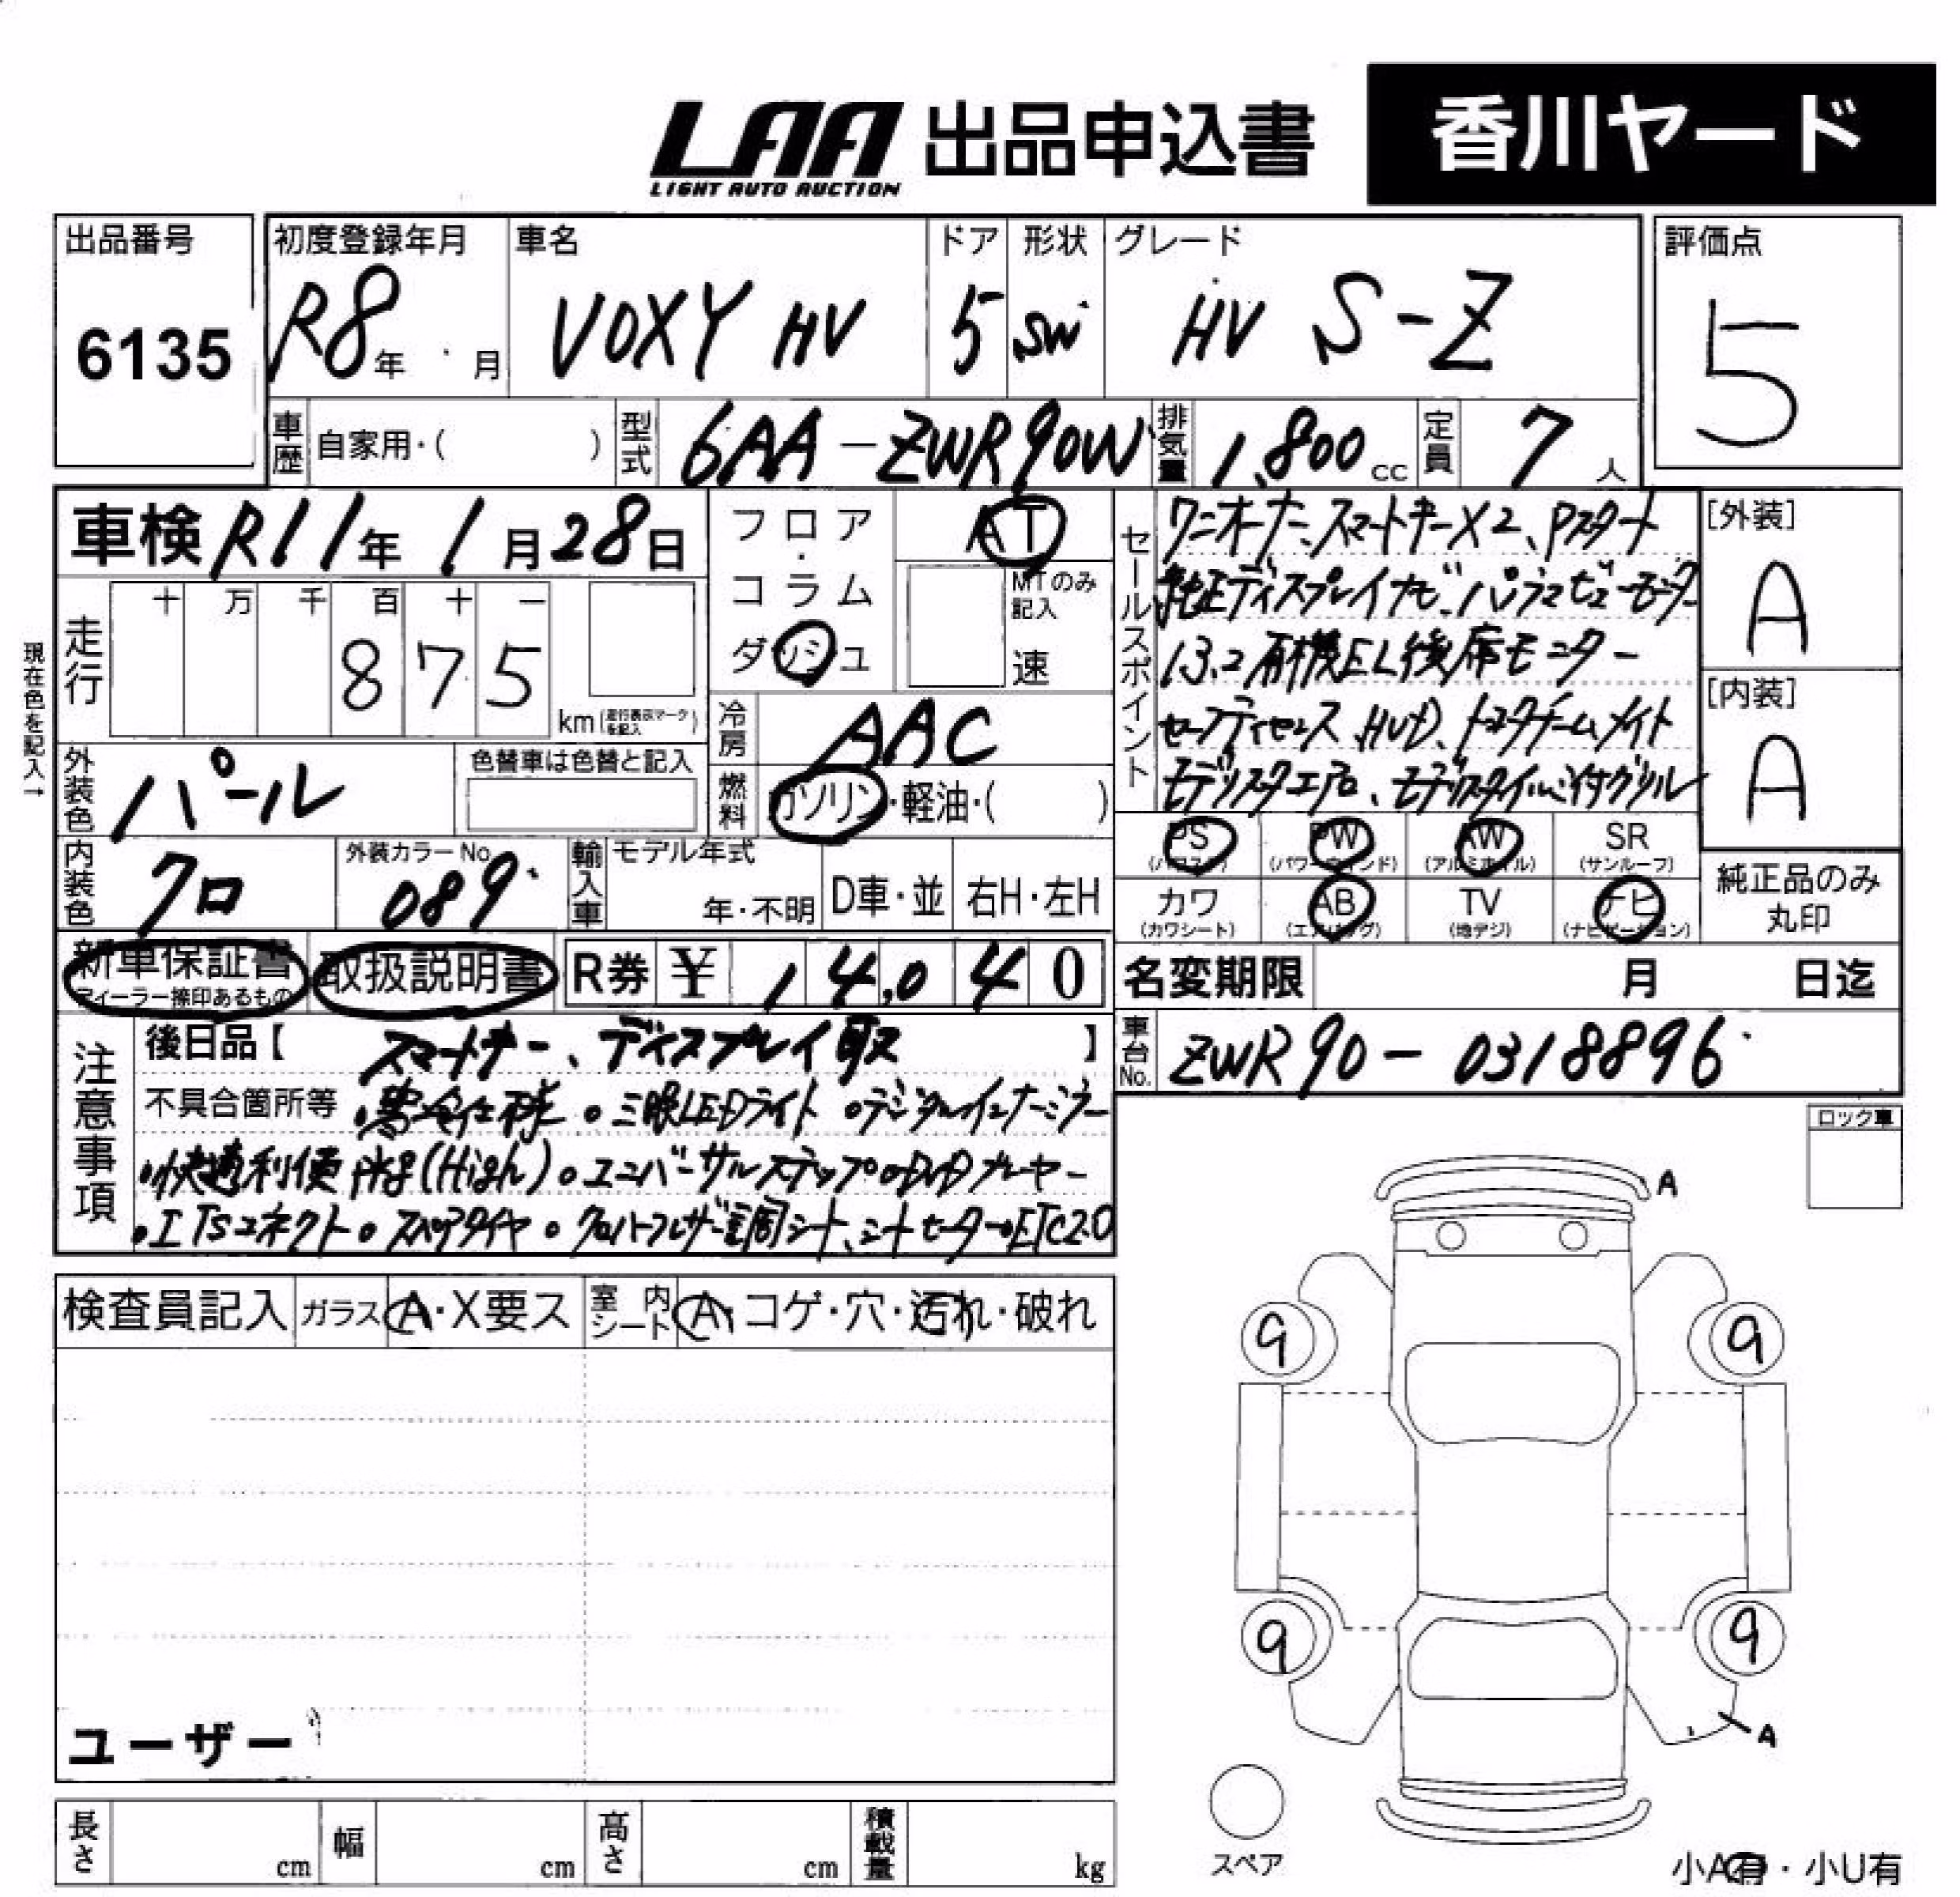 LAA 出品申込書 香川ヤード
LIGHT AUTO AUCTION
出品番号 6135
初度登録年月 R8年 月
車名 VOXY HV
ドア 5
形状 SW
グレード HV S-Z
評価点 5
車歴 自家用・( )
型式 6AA-ZWR90W
排気量 1,800 cc
定員 7 人
車検 R11年 1月28日
現在色を記入→
走行 十 万 千 百 十 一
875 km (走行表示マークを記入)
フロア・コラム ダッシュ
AT
MTのみ記入 速
冷房 AAC
燃料 ガソリン・軽油・( )
外装色 パール
色替車は色替と記入
内装色 クロ
外装カラーNo. 089
輸入車 モデル年式 年・不明 D車・並 右H・左H
セールスポイント
ワンオーナー、スマートキーX2、Pスタート
純正ディスプレイナビ、パノラマビューモニター
13.2有機EL後席モニター
セーフティセンス、HUD、トヨタチームメイト
モデリスタエアロ、モデリスタイルミ付グリル
[外装] A
[内装] A
PS (パワステ) PW (パワーウィンド) AW (アルミホイル) SR (サンルーフ)
カワ (カワシート) AB (エアバッグ) TV (地デジ) ナビ (ナビゲーション)
純正品のみ丸印
新車保証書 ディーラー捺印あるもの
取扱説明書
R券 ¥ 14,040
名変期限 月 日迄
車台No. ZWR90-0318896
注意事項
後日品【スマートキー、ディスプレイ取】
不具合箇所等 ・寒冷仕様 。三眼LEDライト 。デジタルインナーミラー
・快適利便PKg(High)。ユニバーサルステップ。DVDプレーヤー
・ITSコネクト。スペアタイヤ。クロハーフレザー調シート、シートヒーター。ETC2.0
ロック車
検査員記入 ガラス A・X要ス 室内シート A・コゲ・穴・汚れ・破れ
ユーザー
A
9 9
9 9
A
スペア
小A有・小U有
長さ cm 幅 cm 高さ cm 積載量 kg